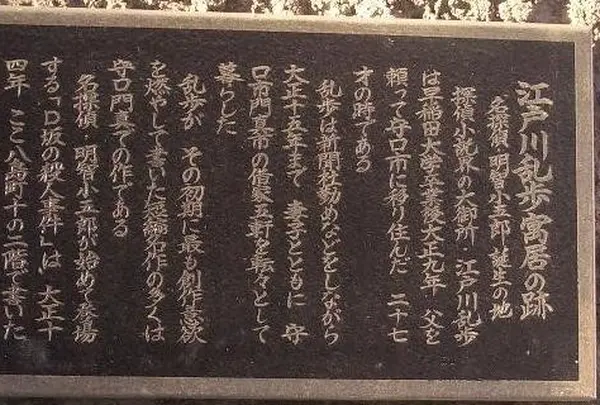 江戸川乱歩寓居の跡
名探偵・明智小五郎誕生の地
探偵小説界の大御所 江戸川乱歩
は早稲田大学卒業後大正九年 父を
頼って守口市に移り住んだ 二十七
才の時である
乱歩は新聞社勤めなどをしながら
大正十五年まで 妻子とともに 守
口市門真市の借家五軒を転々として
暮らした
乱歩が その初期に最も創作意欲
を燃やして書いた短編名作の多くは
守口門真での作である
名探偵・明智小五郎が始めて登場
する「D坂の殺人事件」は 大正十
四年 ここ八島町十の二階で書いた